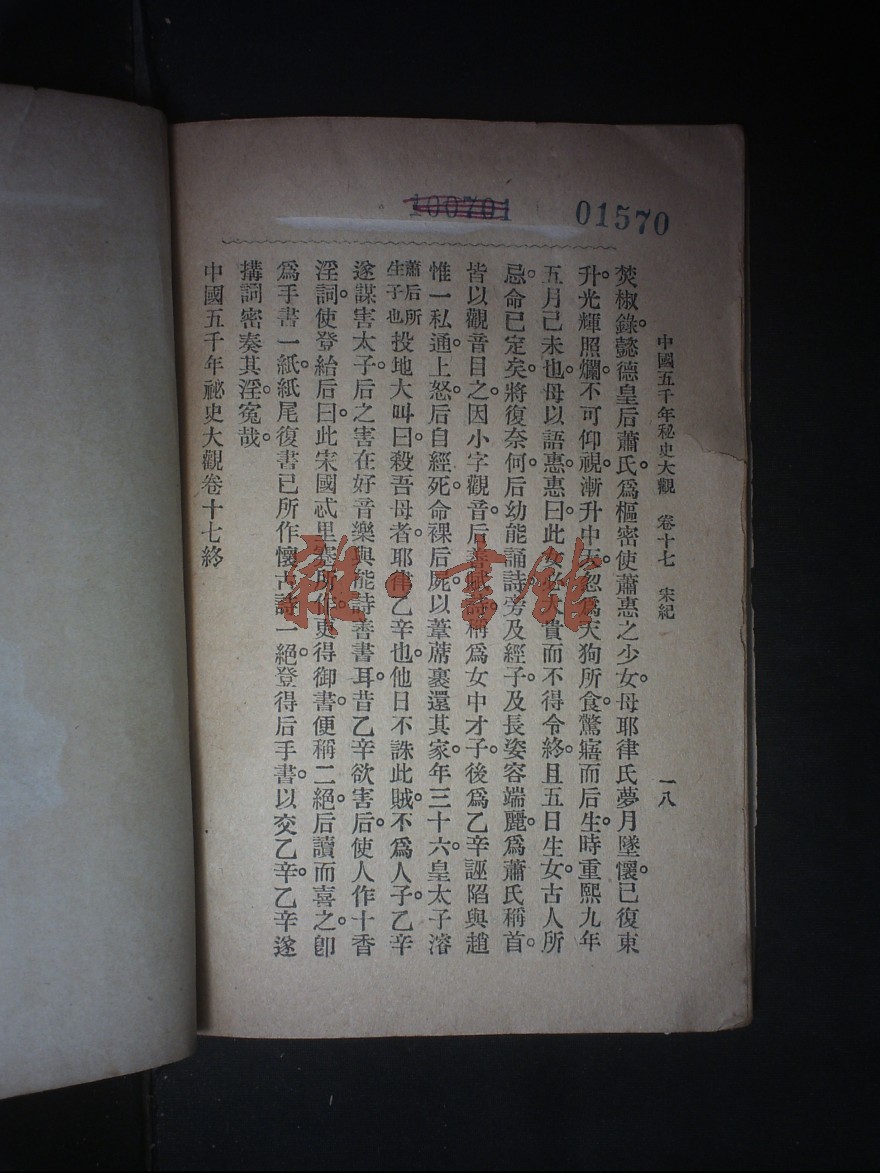 100701
01570
中國五千年秘史大觀 卷十七 宋紀 一八
焚椒錄。懿德皇后蕭氏。爲樞密使蕭惠之少女。母耶律氏夢月墜懷。已復東
升。光輝照爛。不可仰視。漸升中天。忽爲天狗所食。驚寤而后生。時重熙九年
五月己未也。母以語惠。惠曰。此女必大貴而不得令終。且五日生女。古人所
忌。命已定矣。將復奈何。后幼能誦詩。旁及經子。及長。姿容端麗。爲蕭氏稱首。
皆以觀音目之。因小字觀音。后善賦詩。稱爲女中才子。後爲乙辛誣陷與趙
惟一私通。上怒。后自經死。命裸后屍。以葦蓆裹還其家。年三十六。皇太子濬
蕭后所生子也投地大叫曰。殺吾母者。耶律乙辛也。他日不誅此賊。不爲人子。乙辛
遂謀害太子。后之害在好音樂與能詩善書耳。昔乙辛欲害后。使人作十香
淫詞。使登紿后曰。此宋國忒里蹇所作。更得御書。便稱二絕。后讀而喜之。卽
爲手書一紙。紙尾復書已所作懷古詩一絕。登得后手書。以交乙辛。乙辛遂
搆詞密奏其淫。寃哉。
中國五千年祕史大觀卷十七終
雜·書館